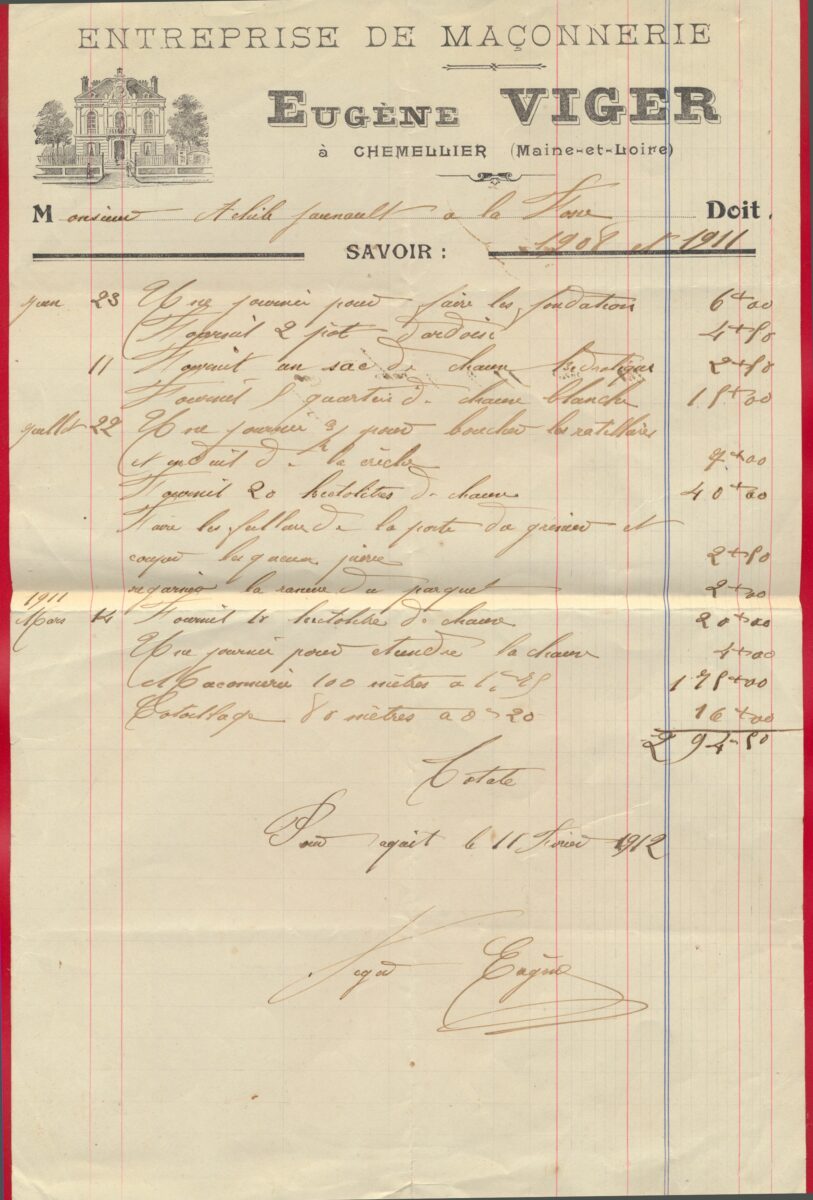 ENTREPRISE DE MAÇONNERIE
EUGÈNE VIGER
à CHEMELLIER (Maine-et-Loire)
Monsieur Achile Jauneault a la Fosse Doit.
1908 et 1911
SAVOIR :
juin 23 Une journée pour faire les fondation 6+00
Fournit 2 pot d'ardoise 4+50
11 Fournit un sac de chaux hidrolique 2+50
Fournit 5 quartru de chaux blanche 15+00
juillet 22 Une journée pour boucher les ratilliaires
et enduit de la crèche 7+00
Fournit 20 hectolitres de chaux 40+00
Faire les de la porte du grenier et
couper pierre 2+50
regarnir la rainure du parquet 2+00
1911
Mars 14 Fournit 10 hectolitre de chaux 20+00
Une journée pour etendre la chaux 4+00
Maconnerie 100 mètres a 1,75 175+00
80 mètres a 0 20 16+00
294-50
Totale
Pour aquit le 11 Février 1912
Viger Eugène